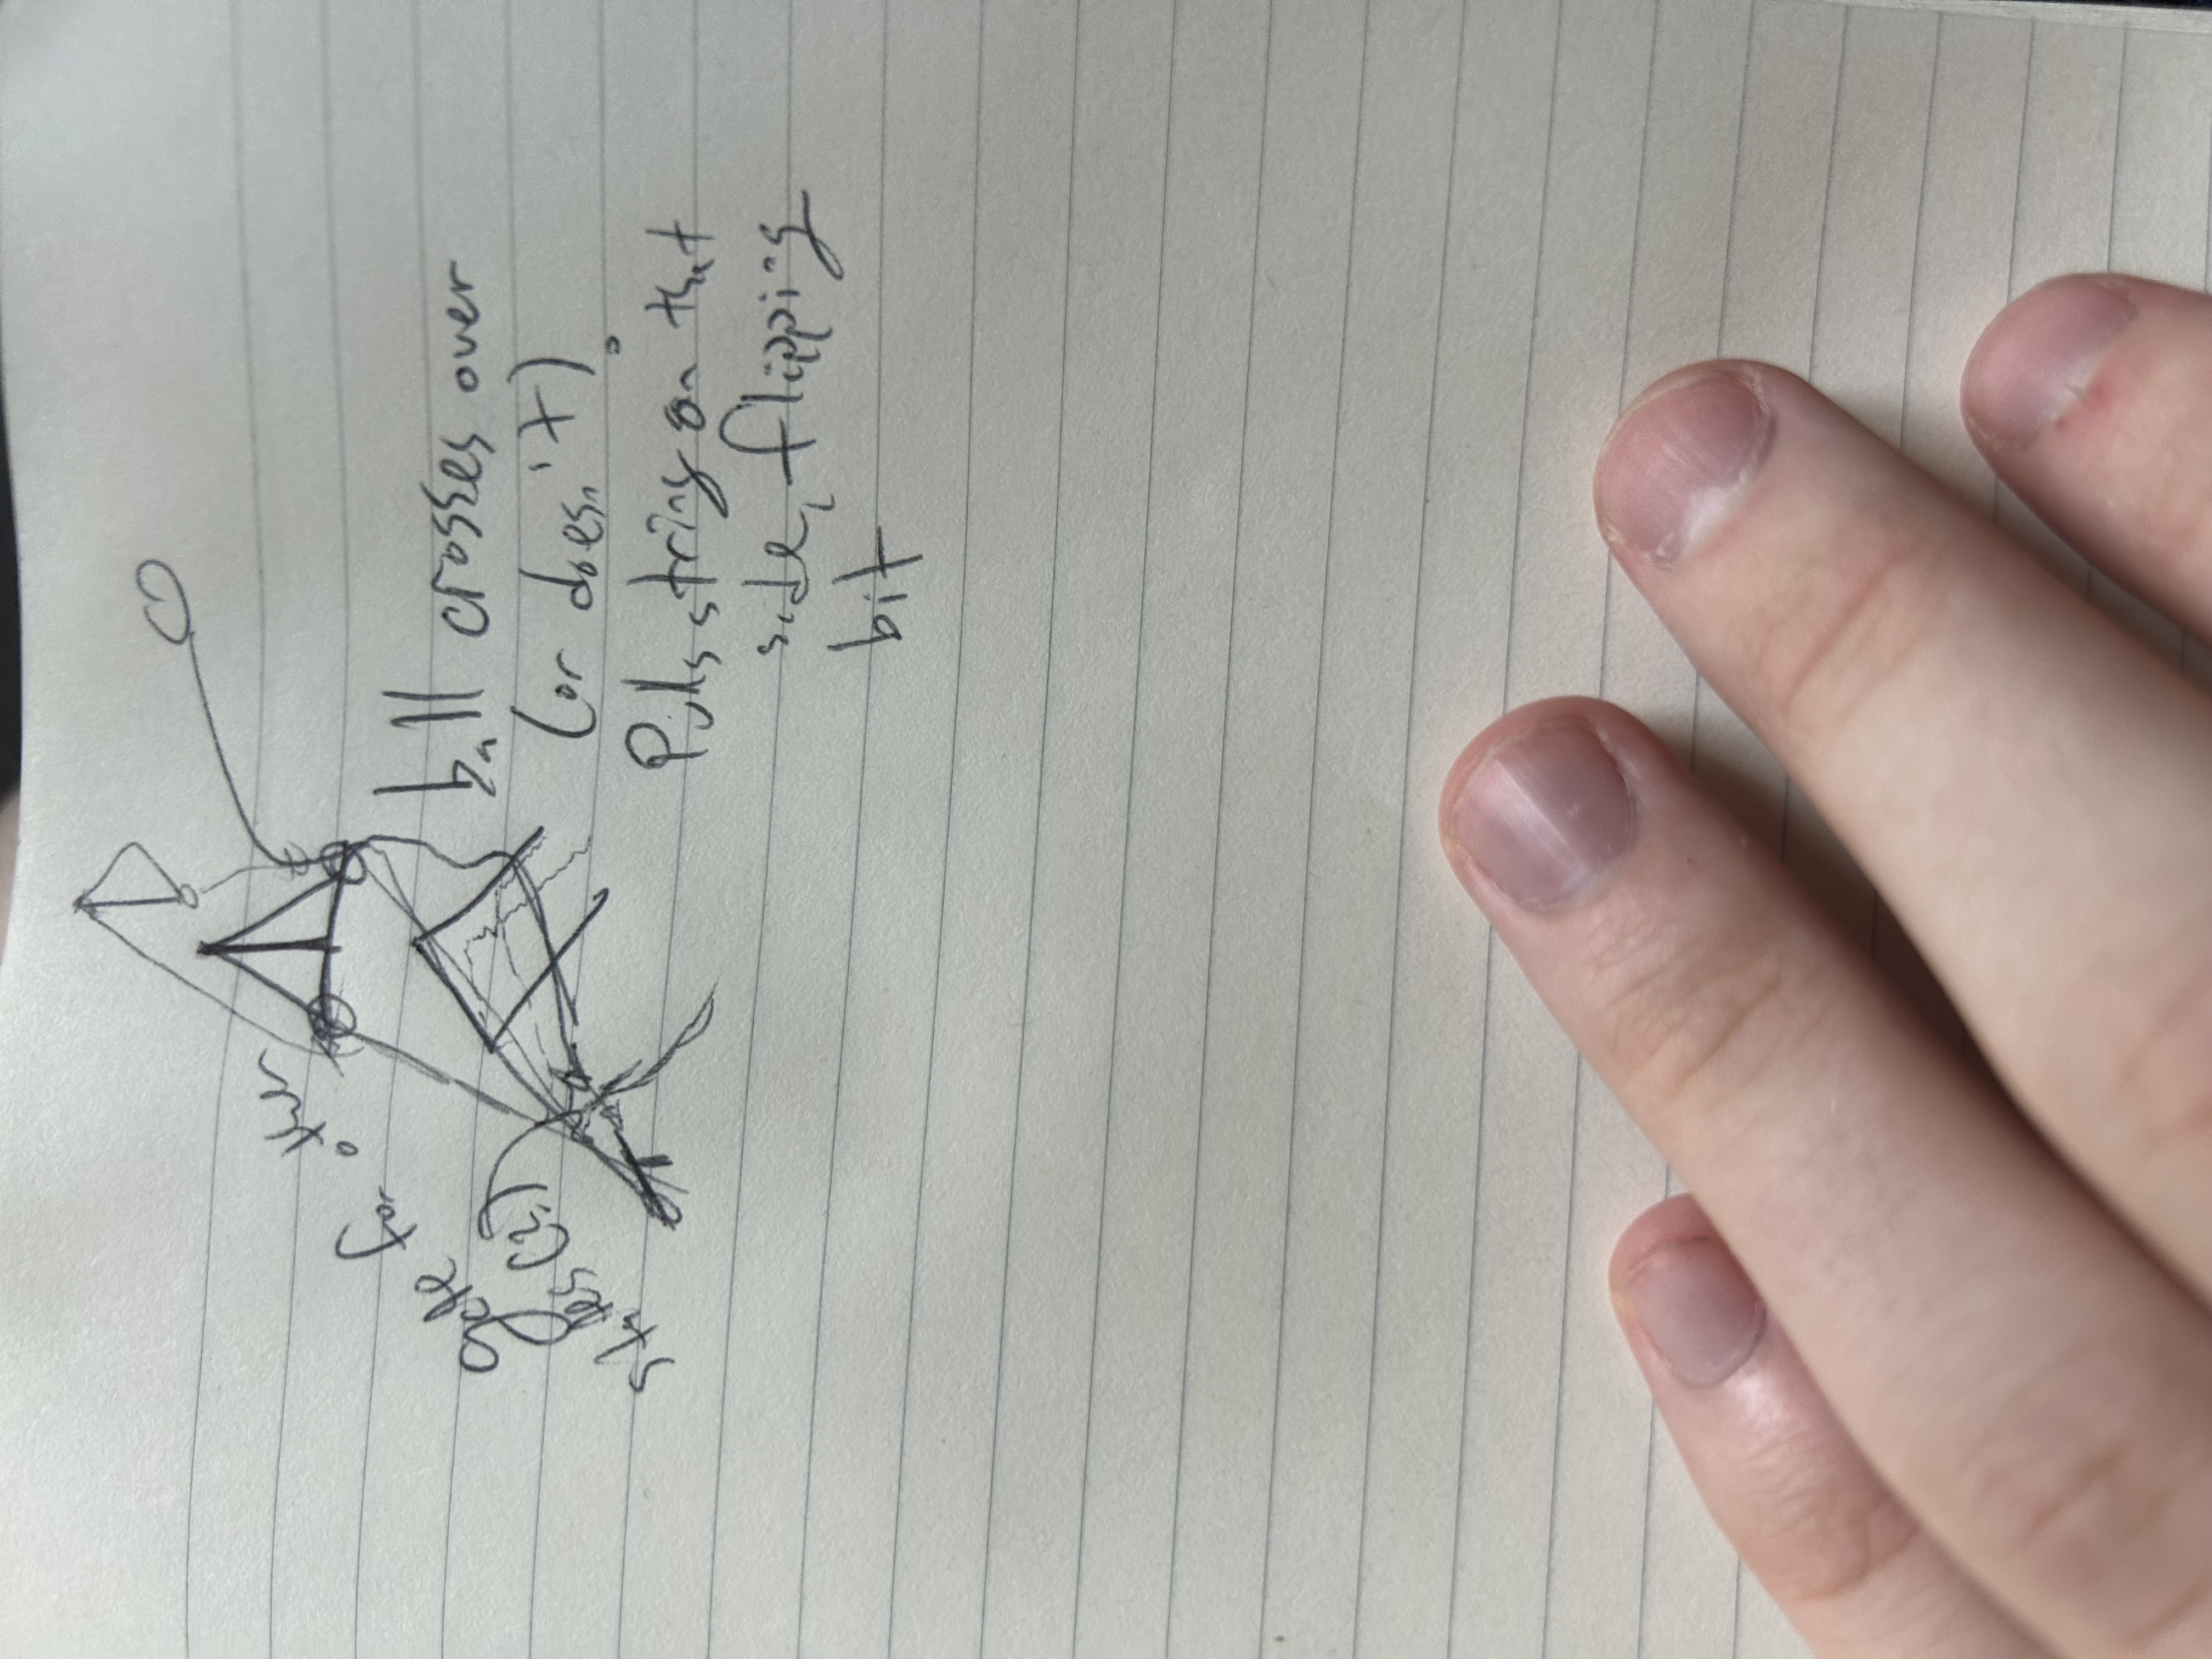 gate for other
states (?)
ball crosses over
(or doesn't).
Pulls string on that
side, flipping
bit